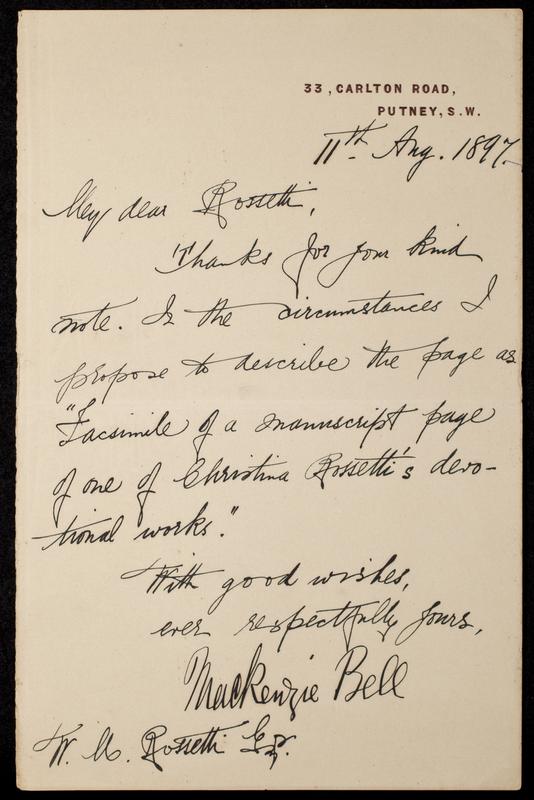 33, CARLTON ROAD,
PUTNEY, S.W.
11th Aug. 1897.
My dear Rossetti,
Thanks for your kind
note. In the circumstances I
propose to describe the page as
"Facsimile of a manuscript page
of one of Christina Rossetti's devo-
tional works."
With good wishes,
ever respectfully yours,
Mackenzie Bell
W. M. Rossetti Esq.